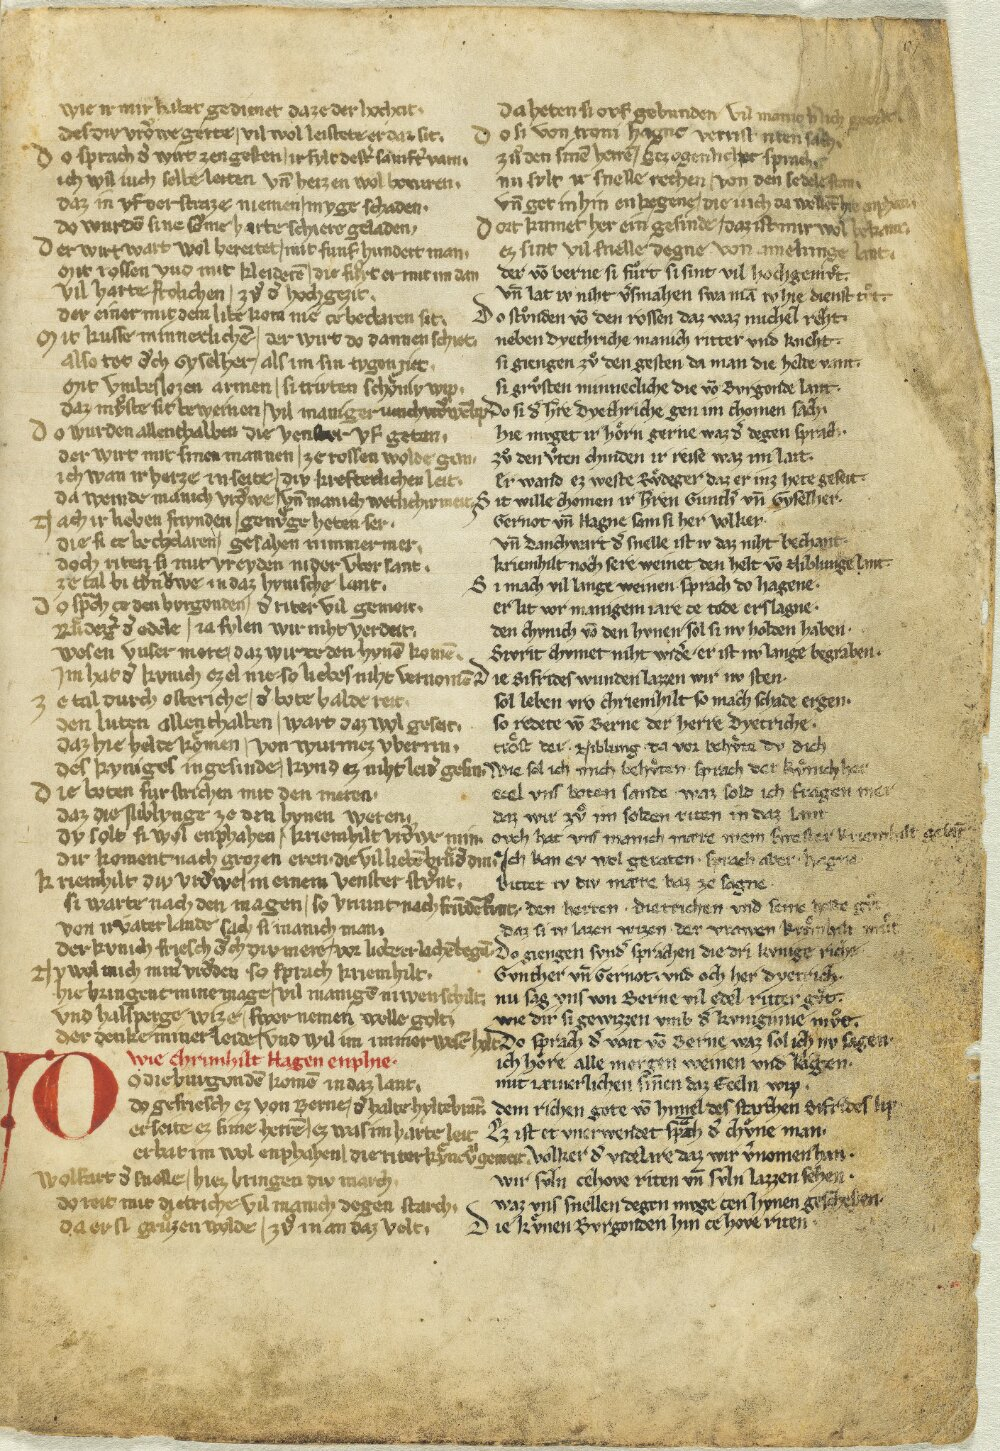 wie ir mir habet gedienet da ze der hochcit.
des div vrowe gerte / vil wol leistete er daz sit.
Do sprach d̉ wirt zen gesten / ir sylt desť samfť varn.
ich wil iuch selbe leiten vn̄ heizen wol bewaren.
daz iu vf der straze niemen / myge schaden.
do wurdē sine sǒme harte schiere geladen.
Der wirt wart wol bereitet / mit funf hundert man.
mit rossen vnd mit kleiderē / die fůrt er mit im dan
vil harte frolichen / zv̊ d̉ hochgezit.
der einer mit dem libe kom nie ce beclaren sit.
Mit kusse minneclichē / der wirt do dannen schiet.
also tet ǒch Gyselher / als im sin tygen riet.
mit vmbeslozen armen / si trivten schoniv wip.
daz mv̊ste sit beweinen / vil maniger
Do wurden allenthalben die venster vf getan.
der wirt mit sinen mannen / ze rossen wolde gan.
ich wan ir herze in seite / div krefteclichen leit.
da weinde manich vrǒwe / vn̄ manich wetlichiv meit.
Nach ir lieben frivnden / genv̊ge heten ser.
die si ce bechelaren / gesahen nimmer mer.
doch riten si mit vreyden nider vber sant.
ze tal bi tv̊nǒwe in daz hynische lant.
Do sp̄ch ce den byrgonden / d̉ riter vil gemeit.
Rv̊deiḡ d̉ edele / ia sylen wir niht verdeit.
wesen vnser mere / daz wir ce den hynē komē.
Im hat d̉ kynich ezel nie so liebes niht vernomē
Ze tal durch osteriche / d̉ bote balde reit.
den luten allenthalben / wart daz wol geseit.
daz hie helte kǒmen / von wurmez vber rin.
des kyniges ingesinde / kynd ez niht leid̉ gesin.
Die boten fur strichen mit den meren.
daz die Niblynge ze den hynen weren.
dv solt si wol enphahen / kriemhilt vrǒwe min.
dir koment nach grozen eren die vil liebē brůd̉ din.
Kriemhilt div vrǒwe / in einem venster stv̊nt.
si warte nach den magen / so vriunt nach frivndē tvnt.
von ir vater lande / sach si manich man.
der kynich friesch ǒch div mere / vor liebe er lachē began
Ny wol mich miner vrǒden so sprach kriemhilt.
hie bringent mine mage / vil manigē niwen schilt.
vnd halsperge wize / swer nemen welle golt.
der denke miner leide / vnd wil im immer wesē holt
wie chrimhilt Hagen enphie.
DO die burgondē komē in daz lant.
do gefriesch ez von Berne / d̉ halte hyltebrant.
er seite ez sime herrē / ez was im harte leit
er bat im wol enphahen / die riter kv̊ne vn̄ gemeit.
Wolfhart d̉ snelle / hiez bringen div march.
do reit mit dietriche vil manich degen starch.
da er si grůzen wolde / zv̊ in an daz velt.
Da heten si vf gebunden vil manic
Do si von troni Hagne verrist riten sach.
zv̊ den sinē herrē / gezogenlicher sprach.
nu sylt ir snelle rechen / von den sedele stan.
vn̄ get in hin enkegene / die iuch da wellent hie enphan.
Dort kumet her ein gesinde / daz ist mir wol bekant.
ez sint vil snelle degne von amelunge lant.
der vō berne si fůrt si sint vil hochgemv̊t.
vn̄ lat iv niht v̉smahen swa mā iv hie dienst tv̊t.
Do stv̊nden vō den rossen daz waz michel reht.
neben Dyethriche manich ritter vnd kneht.
si giengen zv̊ den gesten da man die helte vant.
si grv̊sten minnecliche die vō Byrgonde lant.
Do si d̉ h̉re Dyethriche gen im chomen sach.
hie mvget ir hǒrn gerne waz d̉ degen sprach.
zv̊ den v̊ten chinden ir reise waz im lait.
Er wand ez weste Rv̊deger daz er inz hete geseit.
Sit wille chomen ir h̉ren Gunth̉ vn̄ Gyselher.
Gernot vn̄ Hagne sam si her volker.
vn̄ Danchwart d̉ snelle ist iv daz niht bechant.
kriemhilt noch sere weinet den helt vō niblunge lant
Si mach vil lange weinen sprach do hagene.
er lit vor manigem iare ce tode erslagne.
den chvnich vō den hvnen sol si nv holden haben.
Sivrit chvmet niht wid̉e / er ist nv lange begraben.
Die Sifrides wunden lazzen wir nv sten.
sol leben vro chriemhilt so mach schade ergen.
so redete vō Berne der herre Dyetriche.
trǒst der Niblung da vor behv̊te dv dich
Wie sol ich mich behv̊ten sprach der kv̊nich her
ecel vns boten sande waz sold ich fragen mer
daz wir zv̊ im solden riten in daz lant
ovch hat vns manich mære mein swester kriemhilt gesant
Ich kan ev wol geraten sprach aber hagne
bittet iv div mære baz ze sagne
den herren dietrichen vnd seine helte gůt
daz si iv lazen wizen der vrawen kriemhilt mv̊t
Do giengen synd̉ sprachen die dri kynige riche
Gvnther vn̄ Gernot. vnd och her dyetrich.
nu sag vns von Berne vil edel ritter gůt.
wie dir si gewizzen vmb d̉ kvniginne mv̊t.
Do sprach d̉ voit vō Berne waz sol ich iv sagen.
ich hǒre alle morgen weinen vnd klagen.
mit iæmerlichen sinnen daz Eceln wip.
dem richen gote vō himel des starchen Sifrides lip
Ez ist et vnerwendet sp̄ch d̉ chv̊ne man.
Volker d̉ videlære daz wir v̉nomen han.
wir svln ce hove riten vn̄ svln lazzen sehen.
waz vns snellen degen mvge cen hvnen geschehen.
Die kv̊nen Bvrgonden hin ce hove riten.